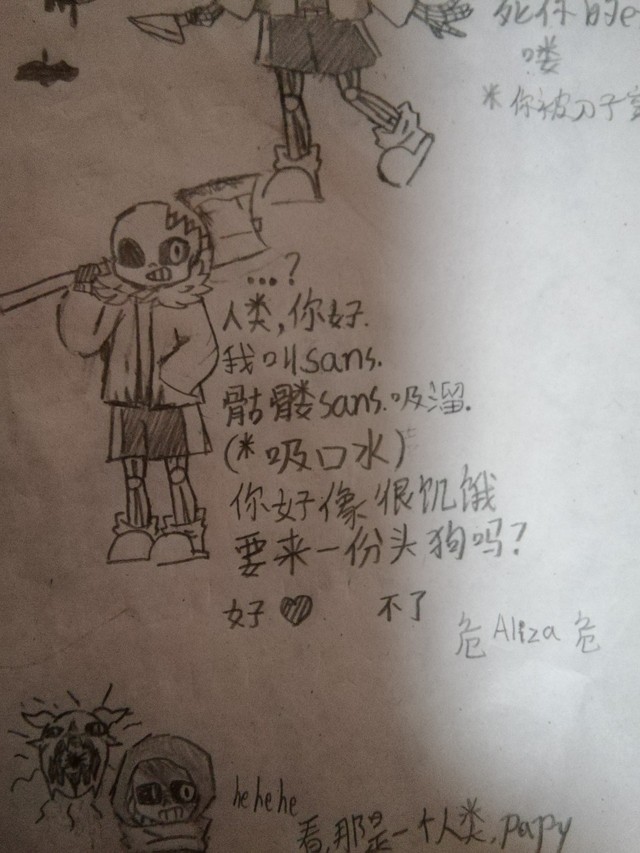 死你的
喽
*你被刀子
...?
人类,你好.
我叫sans.
骷髅sans.吸溜.
(*吸口水)
你好像很饥饿
要来一份头狗吗?
好♥ 不了
危Aliza危
hehehe
看,那是一个人类,papy